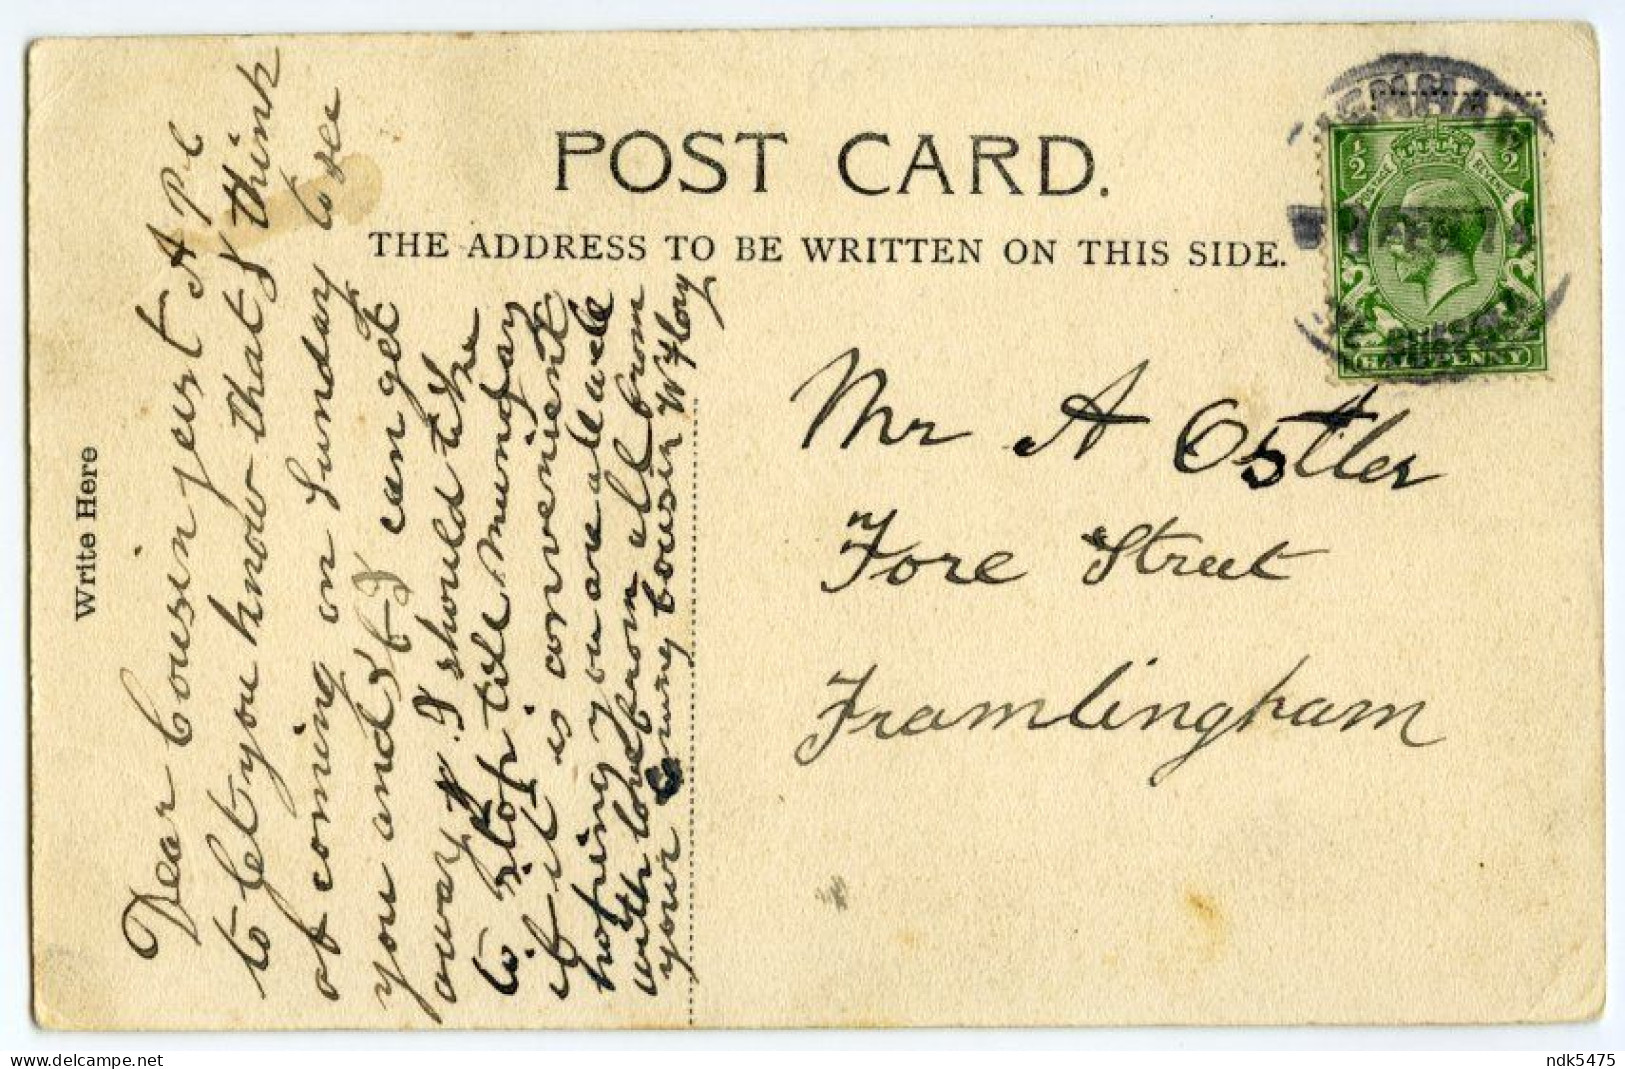 POST CARD.
THE ADDRESS TO BE WRITTEN ON THIS SIDE.
Write Here
Dear Cousin Jest A P C
to let you know that I think
of coming on Sunday to see
you and if I can get
away I should like
to stop till Munday
if it is convenient
hoping you are all well
with love from all from
your loving Cousin W Flory
Mr A Ostler
Fore Street
Framlingham
1/2 1/2
POSTAGE REVENUE
HALFPENNY
delcampe.net
ndk5475